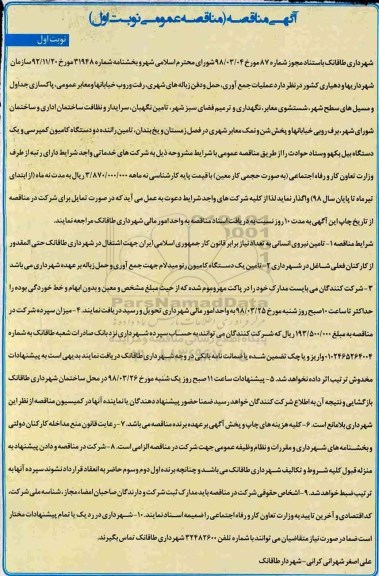 آگهی مناقصه (مناقصه عمومی نوبت اول)
نوبت اول
شهرداری طاقانک باستناد مجوز شماره ۸۷ مورخ ۹۸/۰۳/۰۴ شورای محترم اسلامی شهر و بخشنامه شماره ۳۱۹۴۸ مورخ ۹۲/۱۱/۲۰ سازمان
شهرداریها و دهیاری کشور در نظر دارد عملیات جمع آوری، حمل و دفن زباله های شهری، رفت و روب خیابانها و معابر عمومی، پاکسازی جداول
و مسیل های سطح شهر، شستشوی معابر، نگهداری و ترمیم فضای سبز شهر، تامین نگهبان، سرایدار و نظافت ساختمان اداری و ساختمان
شورای شهر، برف روبی خیابانها و پخش شن و نمک معابر شهری در فصل زمستان و یخ بندان، تامین راننده دو دستگاه کامیون کمپرسی و یک
دستگاه بیل بکهو وستاد حوادث را از طریق مناقصه عمومی با شرایط مشروحه ذیل به شرکت های خدماتی واجد شرایط دارای رتبه از طرف
وزارت تعاون کار و رفاه اجتماعی (به صورت حجمی کار معین) با قیمت پایه کارشناسی نه ماهه ۳/۸۷۰/۰۰۰/۰۰۰ ریال به مدت نه ماه (از ابتدای
تیرماه تا پایان سال ۹۸) واگذار نماید لذا از کلیه شرکت های واجد شرایط دعوت به عمل می آید که در صورت تمایل برای شرکت در مناقصه
از تاریخ چاپ این آگهی به مدت ۱۰ روز نسبت به دریافت اسناد مناقصه به واحد امور مالی شهرداری طاقانک مراجعه نمایند.
شرایط مناقصه ۱- تامین نیروی انسانی به تعداد نیاز برابر قانون کار جمهوری اسلامی ایران جهت اشتغال در شهرداری طاقانک حتی المقدور
از کارکنان فعلی شاغل در شهرداری ۲- تامین یک دستگاه کامیون ریو میدلام جهت جمع آوری و حمل زباله بر عهده شهرداری می باشد
۳- شرکت کنندگان می بایست مدارک خود را در پاکت مهر و موم شده که از حیث مبلغ مشخص و معین و بدون ابهام و خط خوردگی بوده را
حداکثر تا ساعت ۱۰ صبح روز شنبه مورخ ۹۸/۰۳/۲۵ به واحد امور مالی شهرداری تحویل و رسید دریافت نمایند. ۴- میزان سپرده شرکت در
مناقصه به مبلغ ۱۹۳/۵۰۰/۰۰۰ ریال که شرکت کنندگان می توانند به حساب سپرده شهرداری نزد بانک صادرات شعبه طاقانک به شماره
۰۱۰۲۴۶۵۲۶۴۰۰۴ واریز و یا چک تضمین شده یا ضمانت نامه بانکی در وجه شهرداری طاقانک دریافت نمایند بدیهی است به پیشنهادات
مخدوش ترتیب اثر داده نخواهد شد. ۵- پیشنهادات ساعت ۱۱ صبح روز یک شنبه مورخ ۹۸/۰۳/۲۶ در محل ساختمان شهرداری طاقانک
بازگشایی و نتیجه آن به اطلاع شرکت کنندگان خواهد رسید ضمنا حضور پیشنهاد دهندگان یا نماینده آنها در کمیسیون مناقصه از نظر این
شهرداری بلامانع است. ۶- کلیه هزینه های چاپ و پخش آگهی بر عهده برنده مناقصه می باشد. ۷- رعایت قانون منع مداخله کارکنان دولتی
و بخشنامه های شهرداری و مقررات و نظام وظیفه عمومی جهت شرکت در مناقصه الزامی است. ۸- شرکت در مناقصه و دادن پیشنهاد به
منزله قبول کلیه شروط و تکالیف شهرداری طاقانک می باشد و چنانچه برنده اول دوم و سوم حاضر به انعقاد قرارداد نشوند سپرده آنها به
ترتیب ضبط خواهد شد. ۹- اشخاص حقوقی شرکت در مناقصه باید مدارک ثبت شرکت و دارندگان صاحبان امضاء مجاز، شناسه ملی شرکت،
کد اقتصادی و آخرین تاییدیه وزارت تعاون کار و رفاه اجتماعی را ضمیمه اسناد نمایند. ۱۰- شهرداری در رد یک یا تمام پیشنهادات مختار
است ضمنا در صورت نیاز متقاضیان می توانند با شماره تلفن ۳۲۴۸۲۶۰۰ شهرداری طاقانک تماس بگیرند.
علی اصغر شهرانی کرانی - شهردار طاقانک